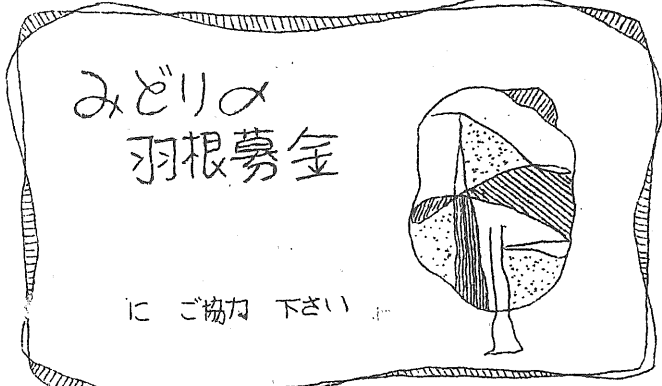 みどりの
羽根募金
に ご協力 下さい